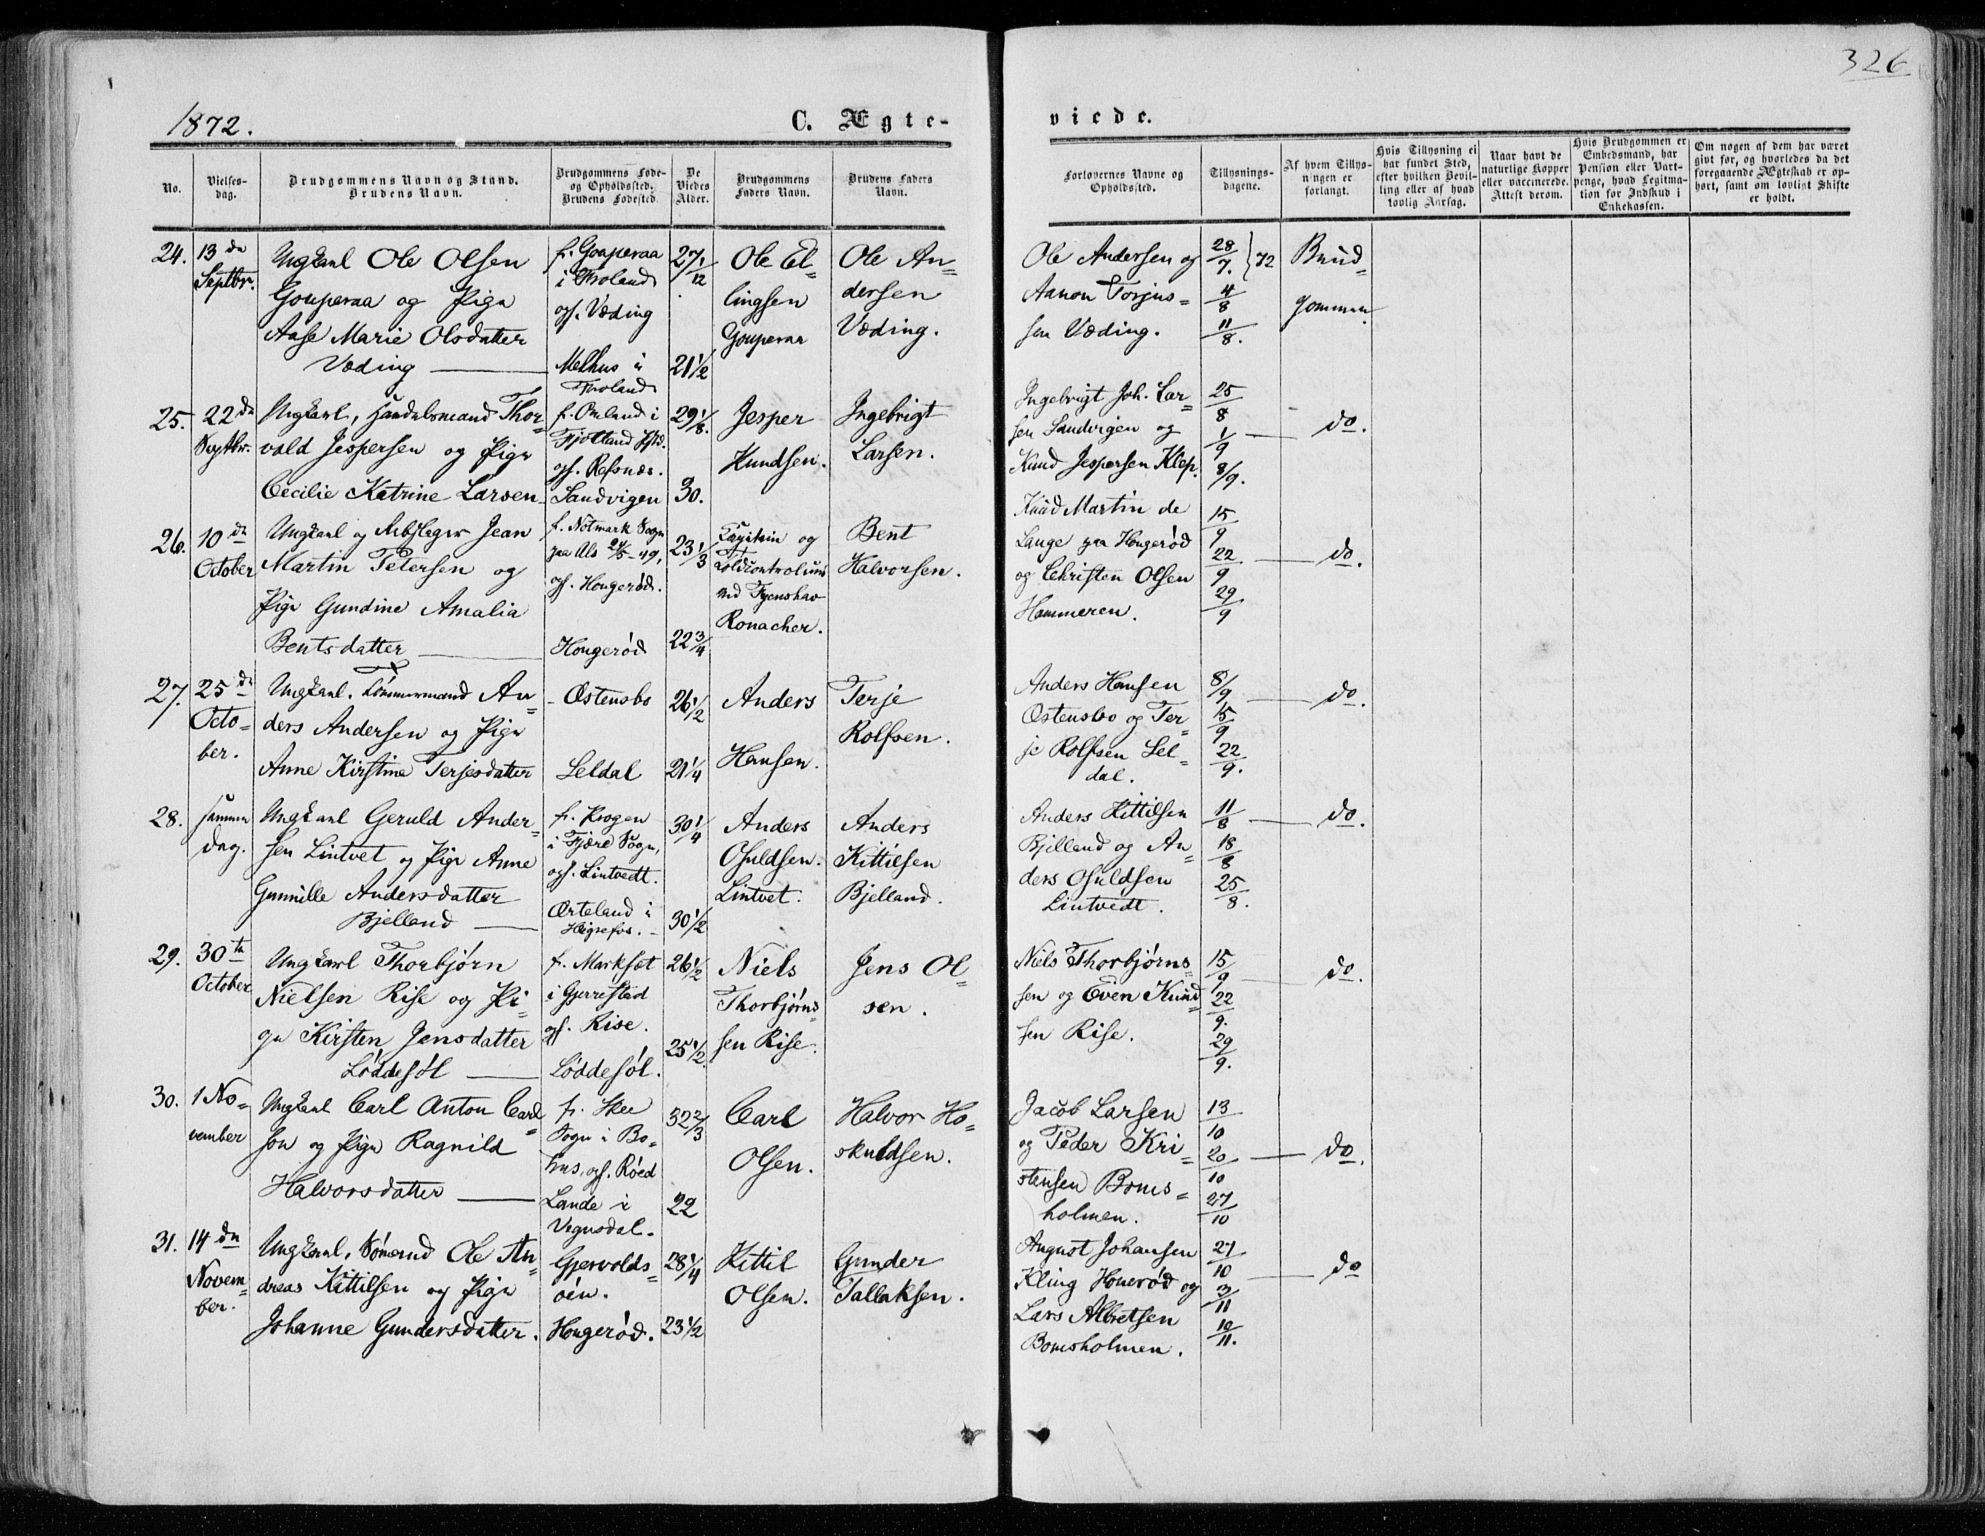 326
1872.
C. Ægte-
viede.
No.
Vielses-
dag.
Brudgommens Navn og Stand.
Brudens Navn.
Brudgommens Føde-
og Opholdssted.
Brudens Fødested.
De
Viedes
Alder.
Brudgommens
Faders Navn.
Brudens Faders
Navn.
Forlovernes Navne og
Opholdssted.
Tillysnings-
dagene.
Af hvem Tillys-
ningen er
forlangt.
Hvis Tillysning ei
har fundet Sted,
efter hvilken Bevil-
ling eller af hvad
lovlig Aarsag.
Naar havt de
naturlige Kopper
eller vaccinerede.
Attest derom.
Hvis Brudgommen er
Embedsmand, har
Pension eller Vart-
penge, hvad Legitma-
tion for Indskud i
Enkekassen.
Om nogen af dem har været
givt før, og hvorledes da det
foregaaende Ægteskab er op-
hørt, samt om lovligt Skifte
er holdt.
24.
13de
Septbr.
Ungkarl Ole Olsen
Gouperaa og Pige
Aase Marie Olsdatter
Væding
f. Gouperaa
i Froland
of. Væding
Melhus i
Froland
27 1/12
21 1/2
Ole El-
lingsen
Gouperaa
Ole An-
dersen
Væding.
Ole Andersen og
Aanon Torjus-
sen Væding.
28/7. } 72
4/8
11/8.
Brud-
gommen
25.
22de
Septbr.
Ungkarl, Handelsmand Thor-
vald Jespersen og Pige
Cecilie Katrine Larsen
f. Omland i
Fjotland
of. Refsnæs.
Sandvigen
29 1/8.
30.
Jesper
Knudsen.
Ingebrigt
Larsen.
Ingebrigt Joh. Lar-
sen Sandvigen og
Knud Jespersen Klep.
25/8
1/9
8/9.
do.
26.
10de
October
Ungkarl og Jean
Martin Petersen og
Pige Gundine Amalia
Bentsdatter
f. Notmark Sogn
paa Als 24/5-49,
of. Hougerød.
Hougerød
23 1/3
22 3/4
Kapitain og
Toldcontrolleur
ved Fynshav
Ronacher.
Bent
Halvorsen.
Knud Martin de
Lange paa Hougerød
og Christen Olsen
Hammeren.
15/9
22/9
29/9
do.
27.
25de
Octo-
ber.
Ungkarl. Tømmermand An-
ders Andersen og Pige
Anne Kirstine Terjesdatter
Østensbo
Leldal
26 1/2
21 1/4
Anders
Hansen.
Terje
Rolfsen.
Anders Hansen
Østensbo og Ter-
je Rolfsen Lel-
dal.
8/9
15/9
22/9.
do.
28.
samme
dag.
Ungkarl Geruld Ander-
sen Lintvet og Pige Anne
Gunnille Andersdatter
Bjelland
f. Krogen
i Fjære Sogn,
of. Lintvedt.
Ørteland i
Høgnefos.
30 1/4
30 1/2
Anders
Osuldsen
Lintvet.
Anders
Kittilsen
Bjelland.
Anders Kittilsen
Bjelland og An-
ders Osuldsen
Lintvedt.
11/8
18/8
25/8.
do.
29.
30te
October
Ungkarl Thorbjørn
Nielsen Rise og Pi-
ge Kirsten Jensdatter
Løddesøl
f. Marksæt
i Gjerrestad
of. Rise.
Løddesøl.
26 1/2
25 1/2.
Niels
Thorbjørns-
sen Rise.
Jens Ol-
sen.
Niels Thorbjørns-
sen og Even Knud-
sen Rise.
15/9
22/9.
29/9.
do.
30.
1 No-
vember
Ungkarl Carl Anton Carl-
son og Pige Ragnild
Halvorsdatter
f. Skee
Sogn i Bo-
hus, of. Røed
Lande i
Vegusdal.
32 2/3
22
Carl
Olsen.
Halvor Ho-
skuldsen.
Jacob Larsen
og Peder Kri-
stensen Boms-
holmen.
13/10
20/10
27/10
do.
31.
14de
Novem-
ber.
Ungkarl, Sømand Ole An-
dreas Kittilsen og Pige
Johanne Gundersdatter.
Gjervolds-
øen.
Hougerød.
28 1/4
23 1/2
Kittil
Olsen.
Gunder
Tallaksen.
August Johansen
Kling Houerød og
Lars Albretsen
Bomsholmen.
27/10
3/11
10/11.
do